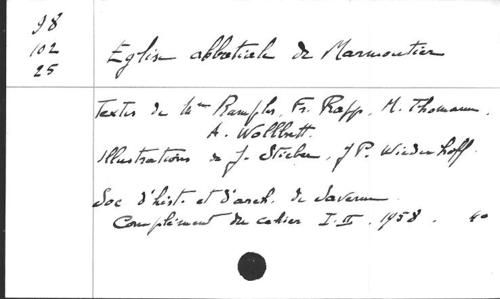 98
102
25
Eglise abbatiale de Marmoutier
Textes de Mme Rampfer, Fr. Rapp, M. Thomann,
A. Wollbrett.
Illustrations de J. Stieber, J P. Wiedenhoff.
Soc d'hist. et d'arch. de Saverne
Complément du cahier I-II. 1958. 40